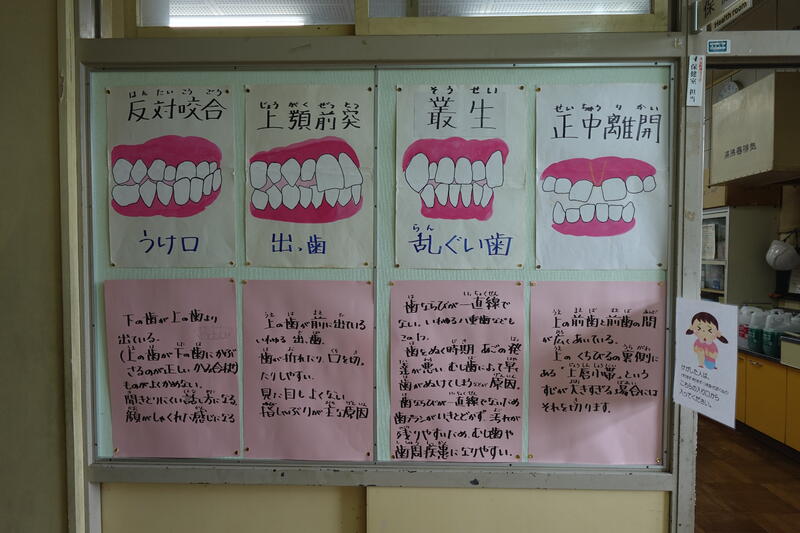 Health room
保健室 担当
湯沸器換気
はんたいこうごう
反対咬合
うけ口
じょうがくぜんとつ
上顎前突
出っ歯
そうせい
叢生
らん
乱ぐい歯
せいちゅうりかい
正中離開
下の歯が上の歯より
出ている。
(上の歯が下の歯にかぶ
さるのが正しい かみ合わせ)
ものがよくかめない。
聞きとりにくい話し方になる
顔がしゃくれた感じになる
上の歯が前に出ている
いわゆる 出っ歯。
歯が折れたり 口を切っ
たりしやすい。
見た目もよくない。
指しゃぶりが主な原因
歯ならびが一直線で
ない。いわゆる八重歯なども
この1つ。
歯をぬく時期 あごの発
達が悪い むし歯によって早く
歯がぬけてしまうなどが 原因。
歯ならびが一直線でないため
歯ブラシがいきとどかず 汚れが
残りやすいため、むし歯や
歯周疾患になりやすい。
上の前歯と前歯の間
が広くあいている。
上のくちびるの裏側に
ある「上唇小帯」という
すじが大きすぎる場合には
それを切ります。
けがした人は、
こちらの入り口から
入ってください。